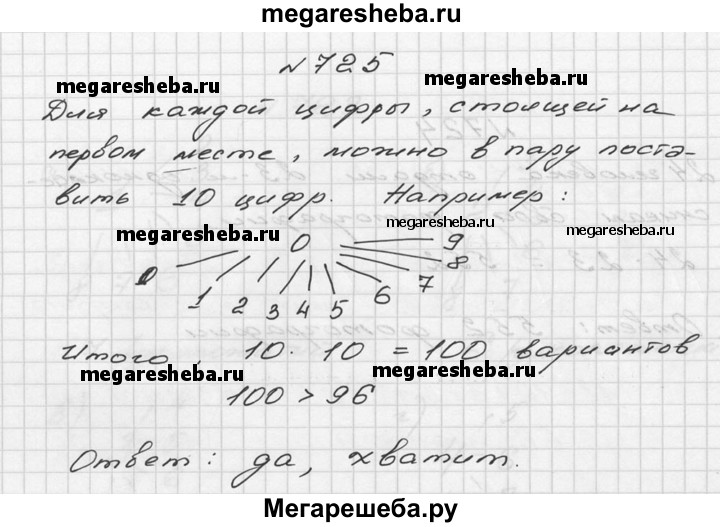 megaresheba.ru
№ 725
megaresheba.ru megaresheba.ru
Для каждой цифры, стоящей на
первом месте, можно в пару поста-
вить 10 цифр. Например:
megaresheba.ru megaresheba.ru megaresheba.ru
0 9
8
0 1 2 3 4 5 6 7
Итого, 10 · 10 = 100 вариантов
megaresheba.ru megaresheba.ru
100 > 96
Ответ: да, хватит.
Мегарешеба.ру